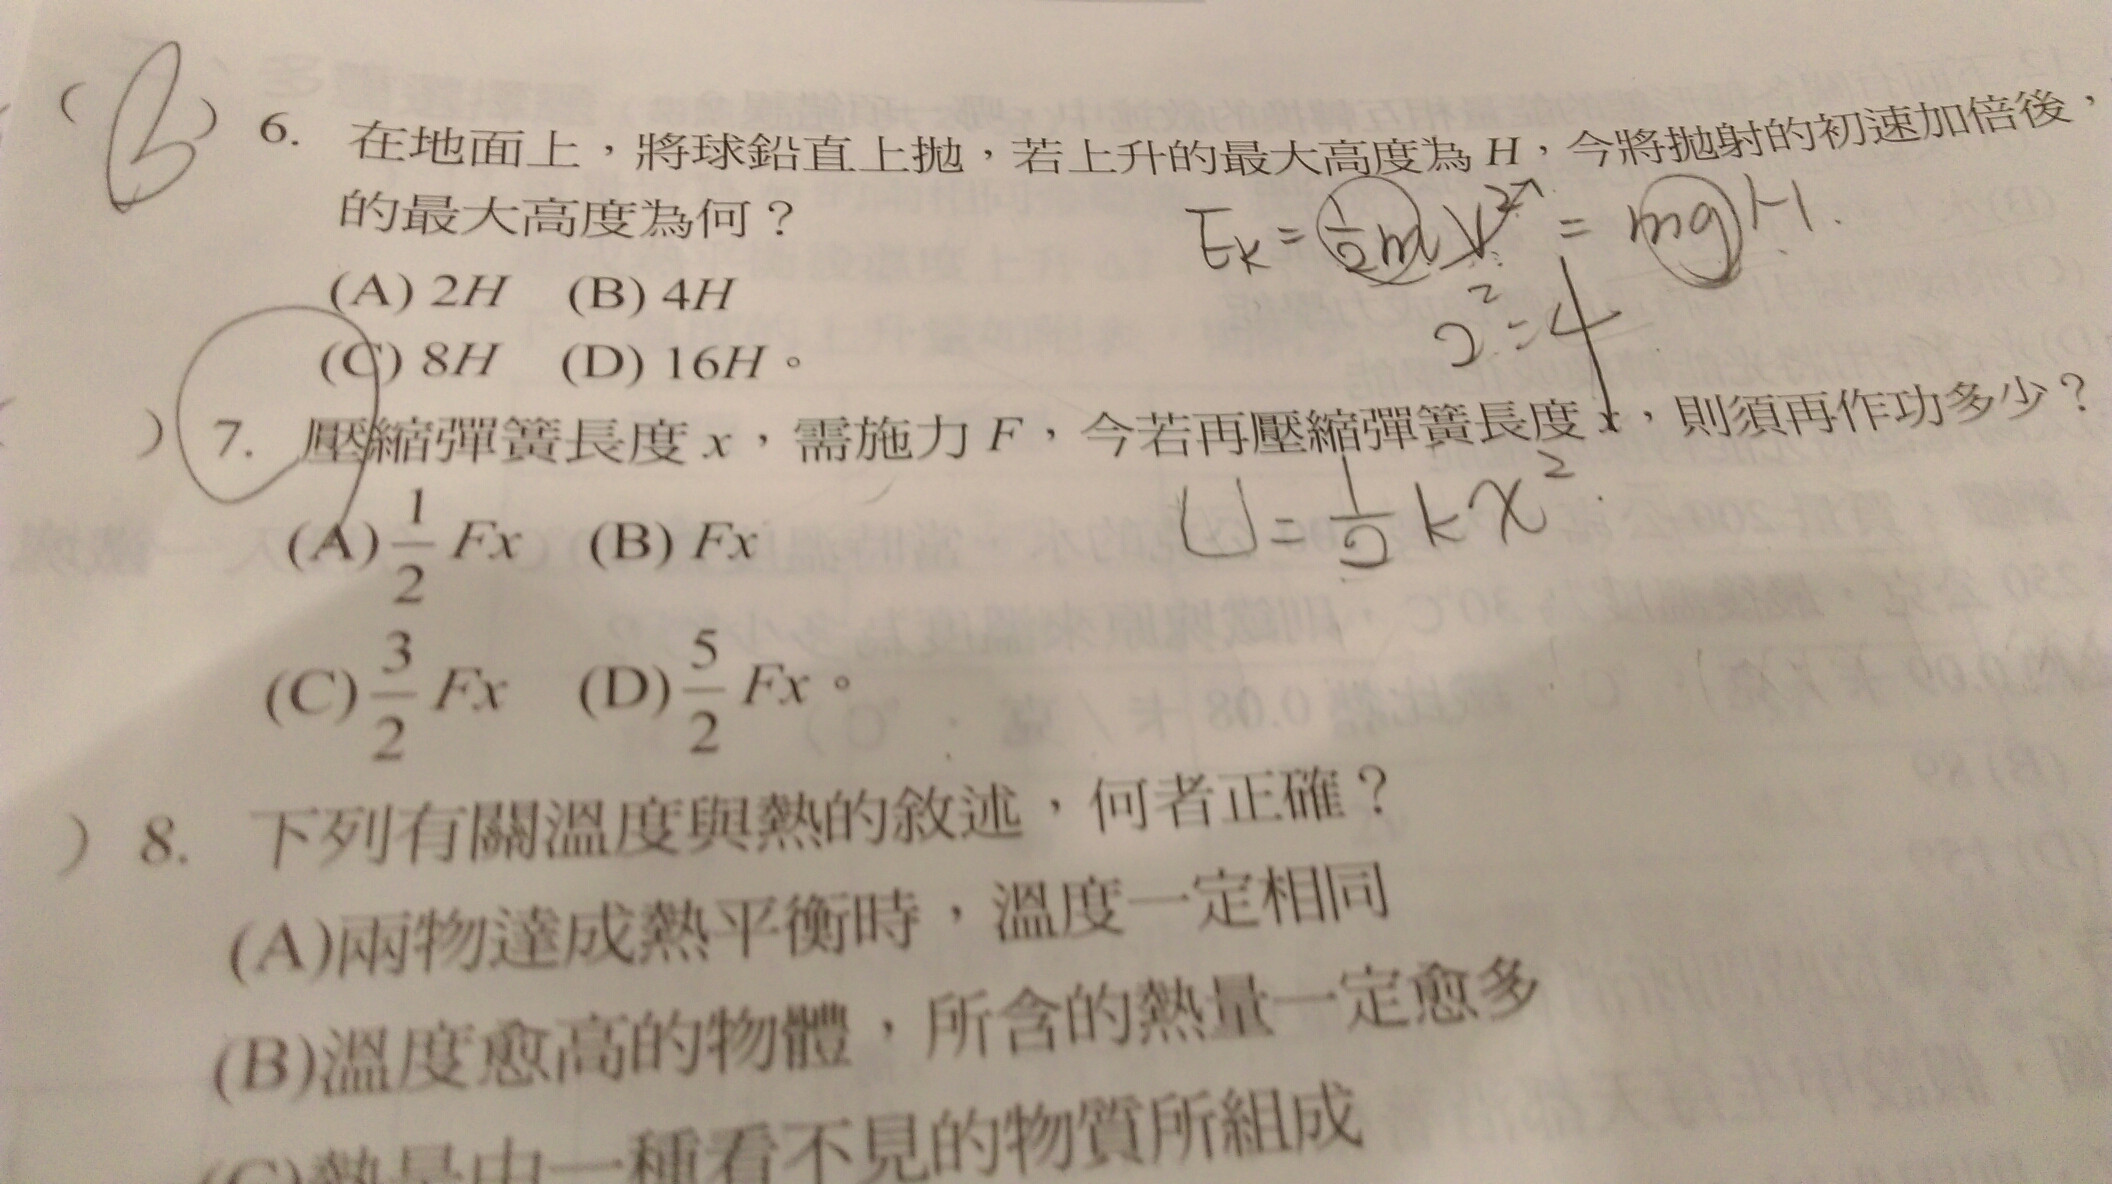 (B) 6. 在地面上，將球鉛直上拋，若上升的最大高度為 H，今將拋射的初速加倍後，
的最大高度為何？
E_K = 1/2 m v² = mg H.
(A) 2H (B) 4H
2² = 4
(C) 8H (D) 16H。
) 7. 壓縮彈簧長度 x，需施力 F，今若再壓縮彈簧長度 x，則須再作功多少？
U = 1/2 k x²
(A) 1/2 Fx (B) Fx
(C) 3/2 Fx (D) 5/2 Fx。
) 8. 下列有關溫度與熱的敘述，何者正確？
(A)兩物達成熱平衡時，溫度一定相同
(B)溫度愈高的物體，所含的熱量一定愈多
(C)熱是由一種看不見的物質所組成